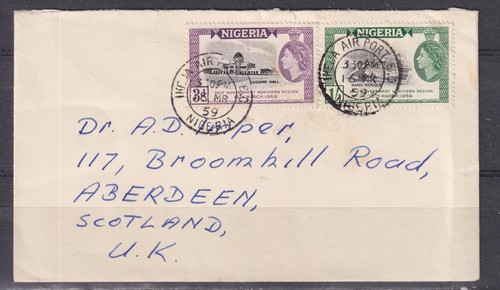 NIGERIA
3d
LUGARD HALL
SELF GOVERNMENT NORTHERN REGION,
MARCH 1959
NIGERIA
1/-
KANO MOSQUE
GOVERNMENT NORTHERN REGION,
MARCH 1959
IKEJA AIR
3 30PM
MR
59
NIGERIA
IKEJA AIR PORT
3 30PM
MR
59
NIGERIA
Dr. A.D. Piper,
117, Broomhill Road,
ABERDEEN,
SCOTLAND,
U.K.